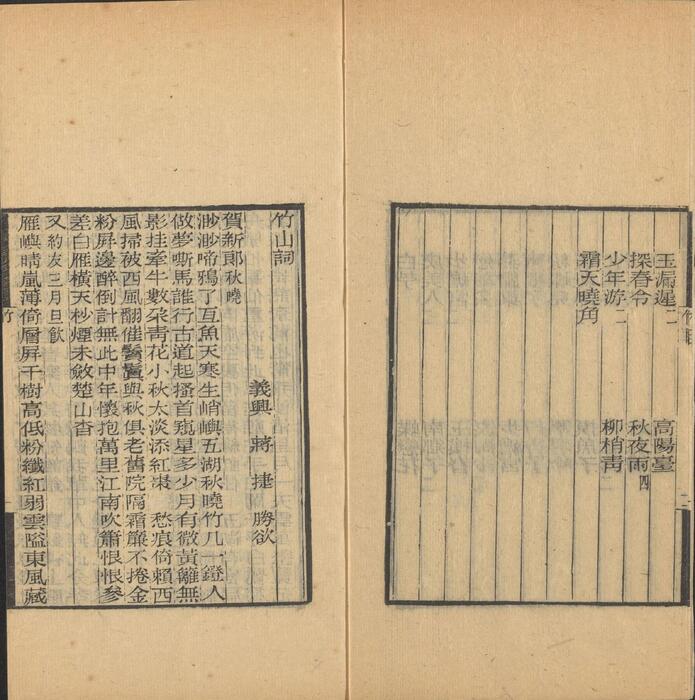 玉漏遲二 高陽臺
探春令 秋夜雨四
少年游二 柳梢青
霜天曉角
竹目
二
竹山詞
義興 蔣 捷 勝欲
賀新郎秋曉
渺渺啼鴉了亙魚天寒生峭嶼五湖秋曉竹几一鐙人
做夢嘶馬誰行古道起搔首窺星多少月有微黃籬無
影挂牽牛數朶青花小秋太淡添紅棗 愁痕倚賴西
風掃被西風翻催鬢鬒與秋俱老舊院隔霜簾不捲金
粉屏邊醉倒計無此中年懷抱萬里江南吹簫恨恨參
差白雁橫天杪煙未斂楚山杳
又約友三月旦飲
雁嶼晴嵐薄倚層屏千樹高低粉纖紅弱雲隘東風藏
竹
一